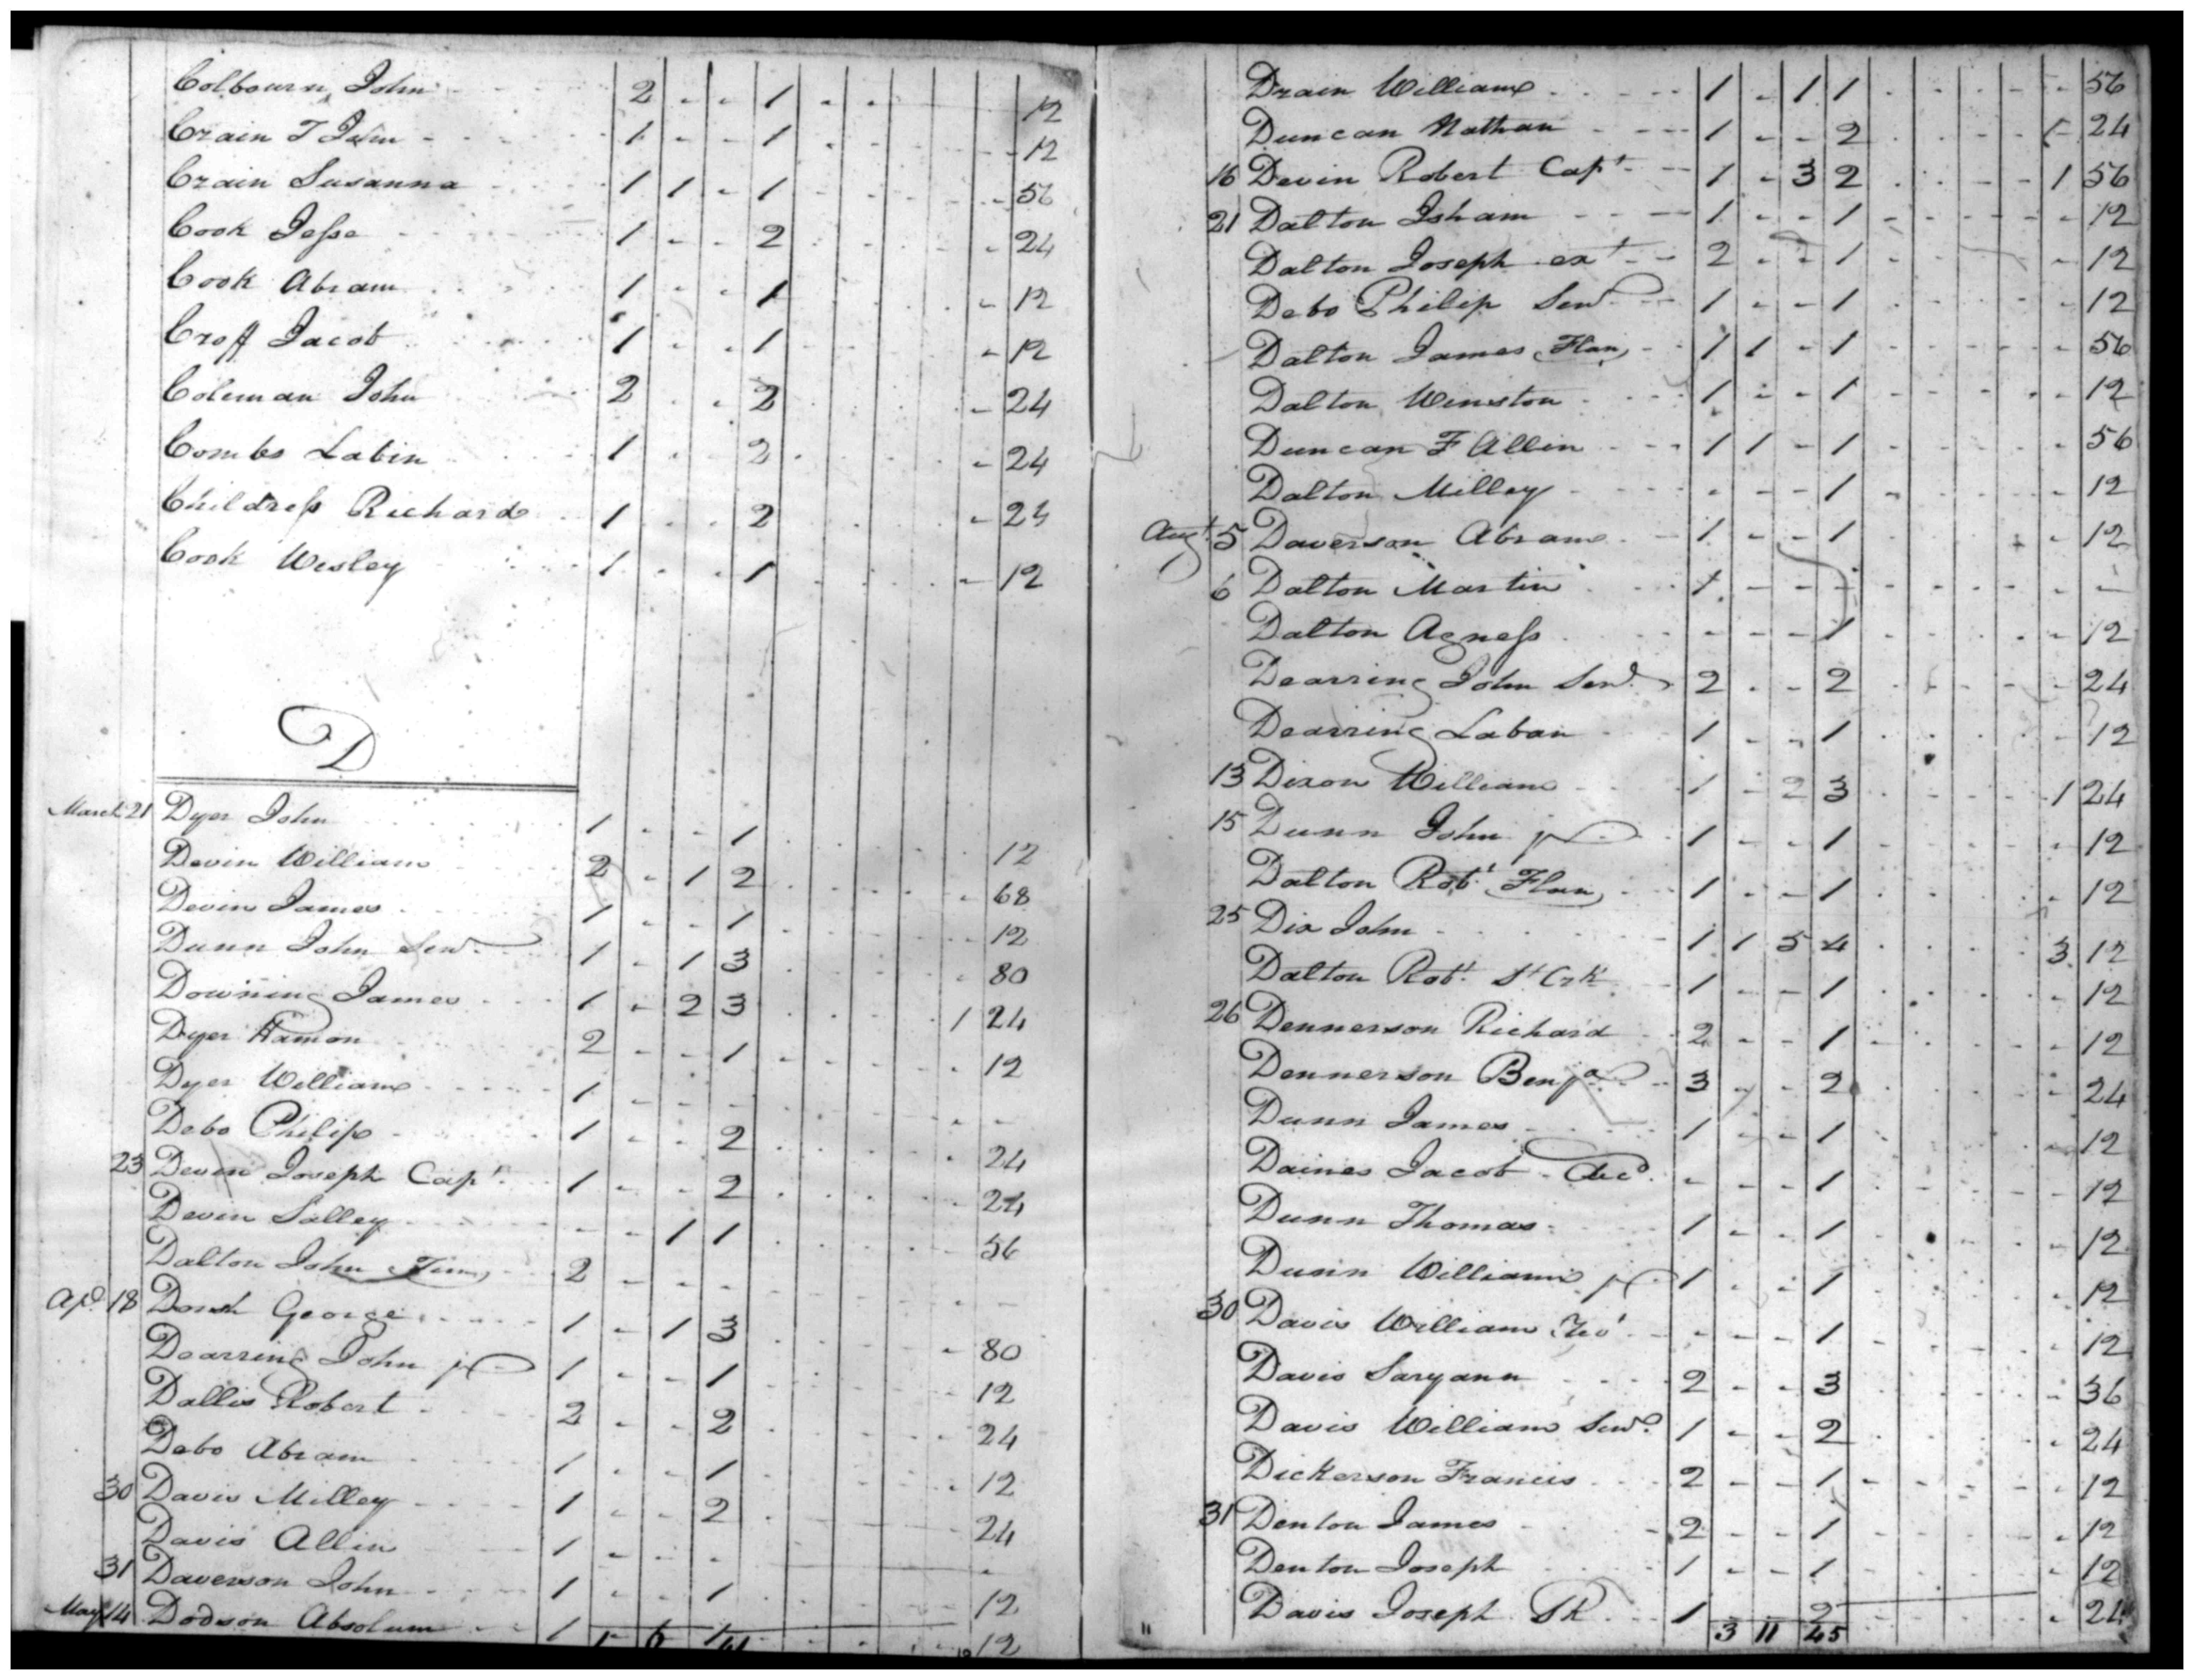 Colbourn John 2 - - 1 - - 12
Crain T John 1 - - 1 - 12
Crain Susanna 1 1 - 1 - 56
Cook Jesse 1 - - 2 - 24
Cook Abram 1 - - 1 - 12
Croff Jacob 1 - - 1 - 12
Coleman John 2 - - 2 - 24
Combs Labin 1 - - 2 - 24
Childress Richard 1 - - 2 - 24
Cook Wesley 1 - - 1 - 12
D
March 21 Dyer John 1 - - 1 - 12
Devin William 2 - 1 2 - 68
Devin James 1 - - 1 - 12
Dunn John Senr 1 - 1 3 - 80
Downing James 1 - 2 3 1 24
Dyer Hamon 2 - - 1 - 12
Dyer William 1 - - - - -
Debo Philip 1 - - 2 - 24
23 Devin Joseph Capt 1 - - 2 - 24
Devin Salley - - 1 1 - 56
Dalton John 2 - - - - -
Apl 18 George 1 - 1 3 - 80
Dearring John jr 1 - - 1 - 12
Dallis Robert 2 - - 2 - 24
Debo Abram 1 - - 1 - 12
30 Davis Milley 1 - - 2 - 24
Davis Allin 1 - - - - -
31 Daverson John 1 - - 1 - 12
May 14 Dodson Absolum 1 - - 1 - 12
1 6 41
Drain William 1 - 1 1 - 56
Duncan Nathan 1 - - 2 - 24
16 Devin Robert Capt 1 - 3 2 - 1 56
21 Dalton Isham 1 - - 1 - 12
Dalton Joseph ext 2 - - 1 - 12
Debo Philip Senr 1 - - 1 - 12
Dalton James Flan 1 1 - 1 - 56
Dalton Winston 1 - - 1 - 12
Duncan F Allin 1 1 - 1 - 56
Dalton Milley - - - 1 - 12
Augt 5 Daverson Abram 1 - - 1 - 12
6 Dalton Martin 1 - - - - -
Dalton Agness - - - 1 - 12
Dearring John Senr 2 - - 2 - 24
Dearring Laban 1 - - 1 - 12
13 Dixon William 1 - 2 3 - 1 24
15 Dunn John jr 1 - - 1 - 12
Dalton Robt Flan 1 - - 1 - 12
25 Dix John 1 1 5 4 - 3 12
Dalton Robt St Crk 1 - - 1 - 12
26 Dennerson Richard 2 - - 1 - 12
Dennerson Benja 3 - - 2 - 24
Dunn James 1 - - 1 - 12
Daines Jacob Decd - - - 1 - 12
Dunn Thomas 1 - - 1 - 12
Dunn William jr 1 - - 1 - 12
30 Davis William - - - 1 - 12
Davis Saryann 2 - - 3 - 36
Davis William Senr 1 - - 2 - 24
Dickerson Francis 2 - - 1 - 12
31 Denton James 2 - - 1 - 12
Denton Joseph 1 - - 1 - 12
Davis Joseph 1 - - 2 - 24
3 11 45